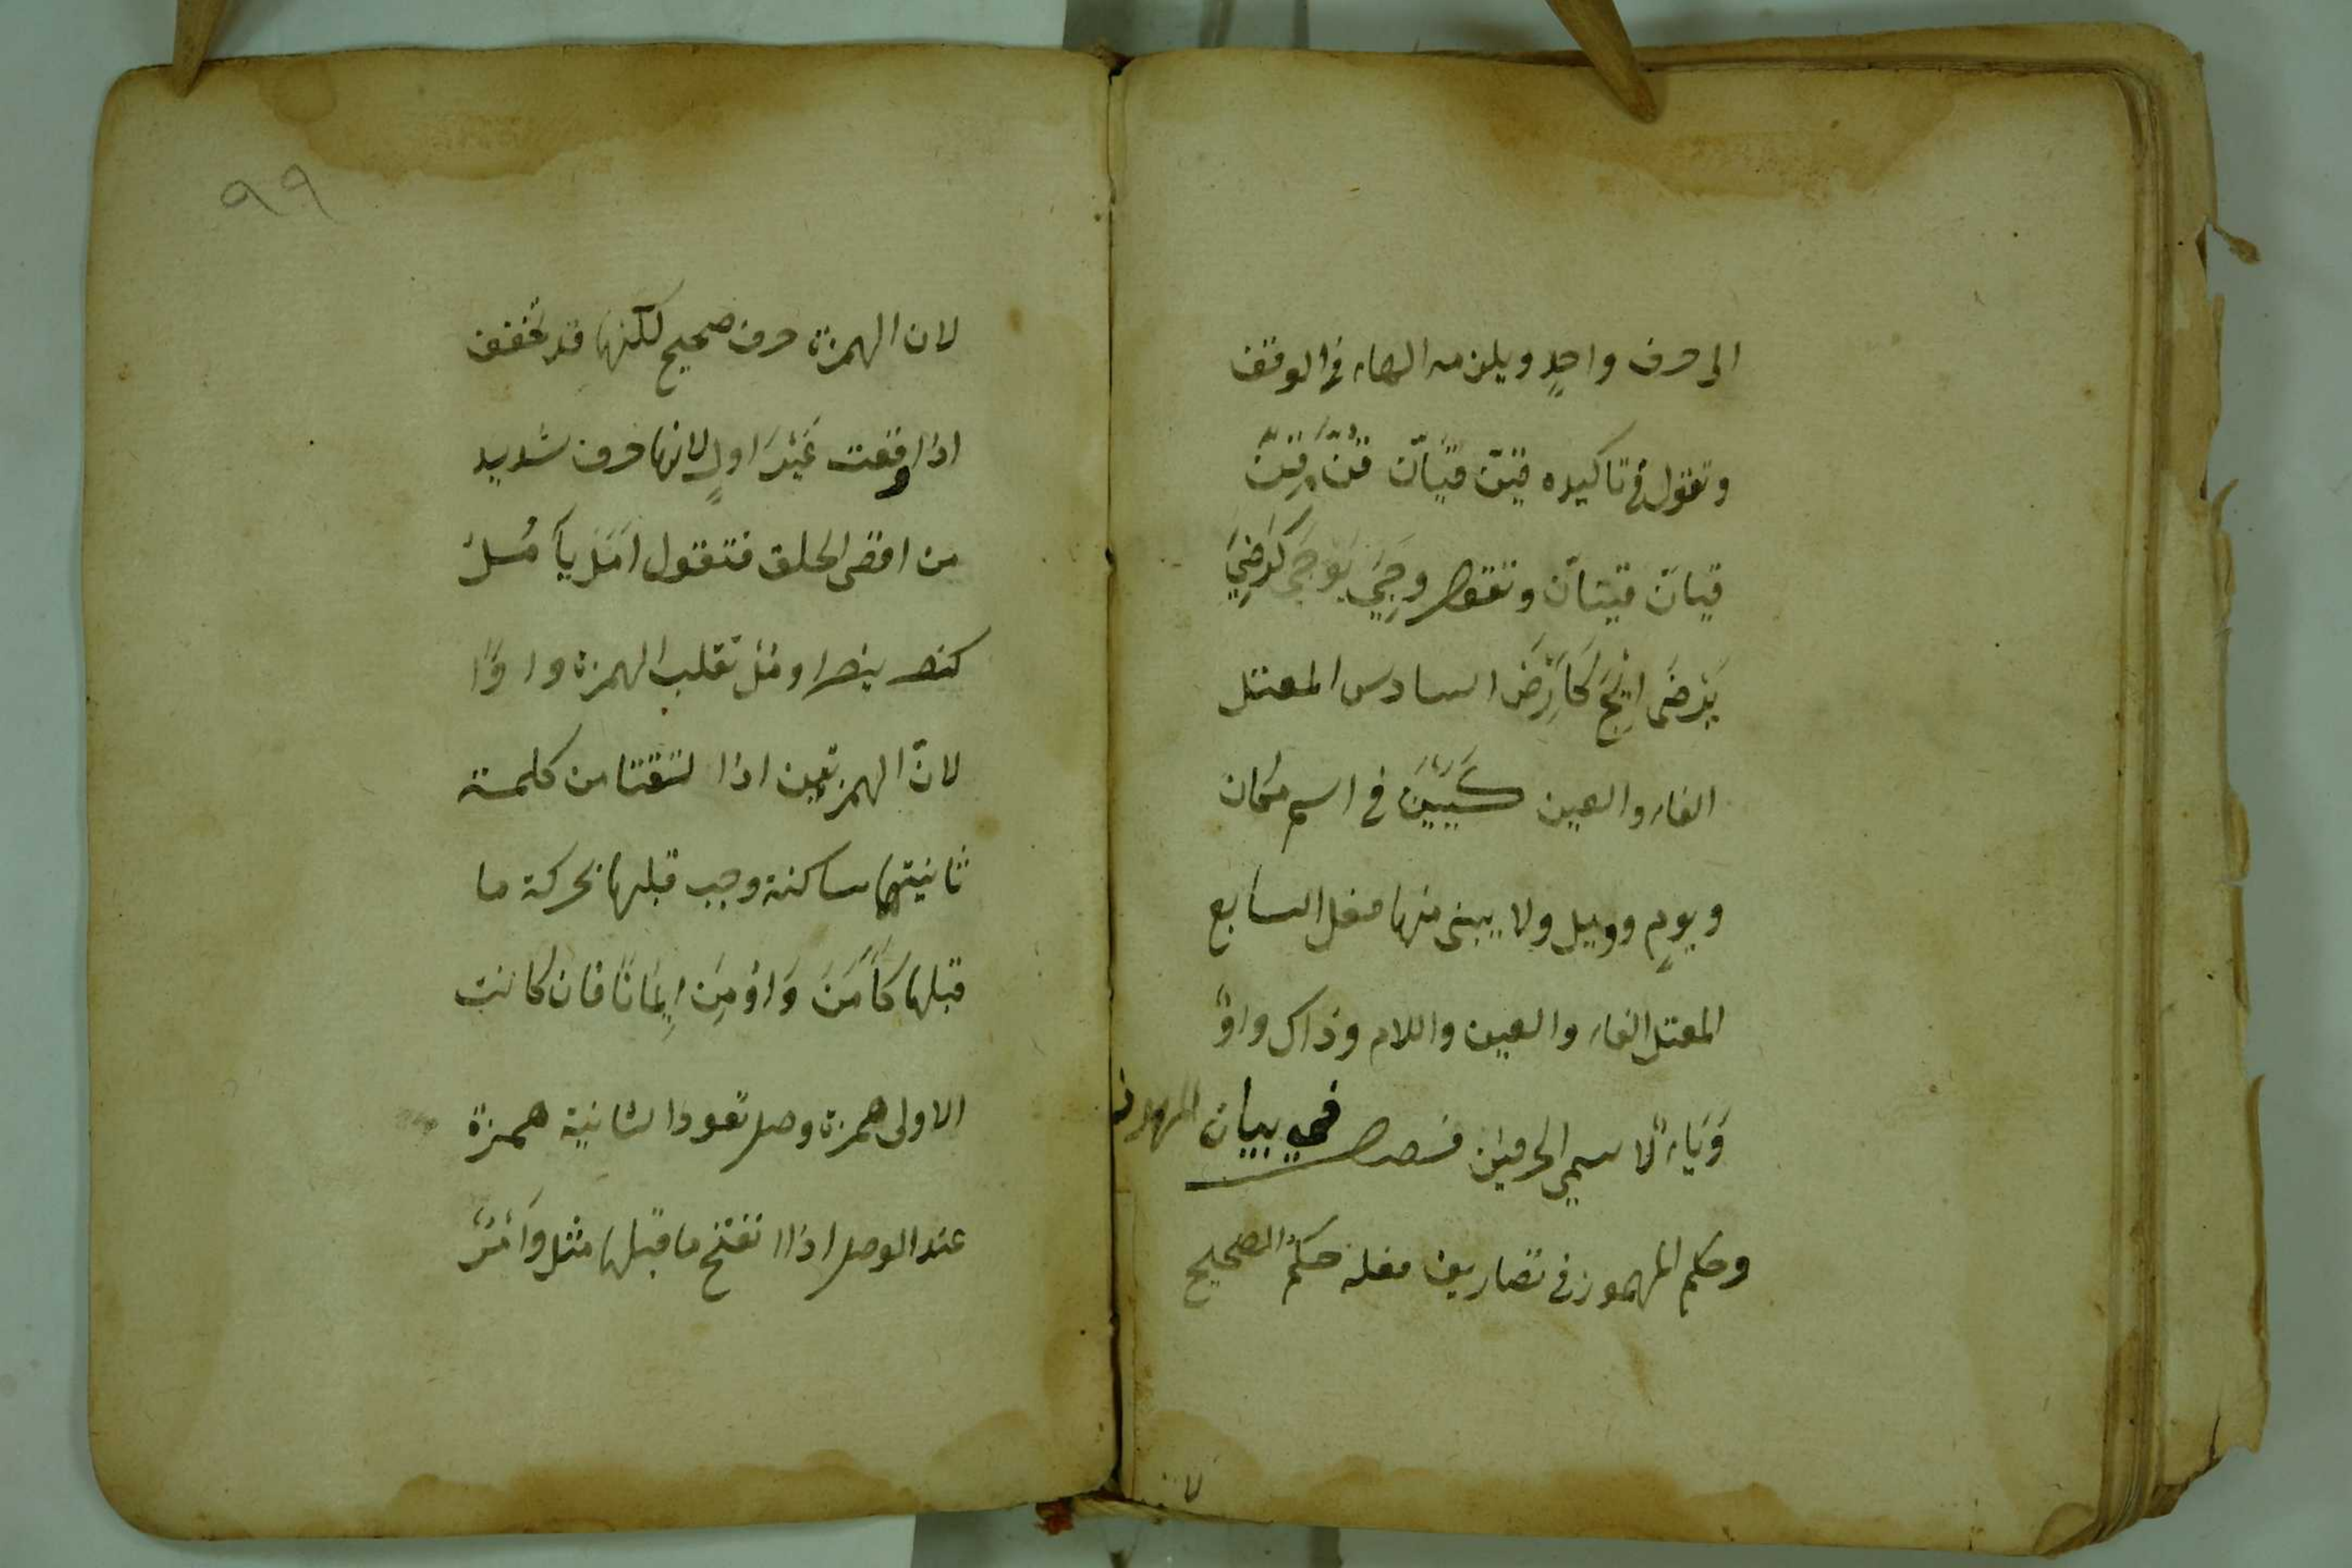 الى حرف واحدٍ ويلزمه الهاء فى الوقف
وتقول فى تاكيده قِيَنّ قِيَانّ قُنَّ قِنَّ
قيانّ قينانّ وتقول وَجِيَ يَوْجَى كَرَضِيَ
يَرْضَى اِيْجَ كَاِرْضَ السادس المعتل
الفاء والعين كَيَيْنَ فى اسم مكان
ويومٍ وويل ولا يبنى منها فعل السابع
المعتل الفاء والعين واللام وذاك واوٌ
وَيَاءٌ لاسمي الحرفين فصل في بيان المهموز
وحكم المهموز فى تصاريف فعله حكم الصحيح
لان
٩٩
لان الهمزة حرف صحيح لكنها قد تخفف
اذا وقعت غَيْرَ اولٍ لانها حرف شديد
من اقصى الحلق فتقول اَمَلَ يأمُلُ
كنصر ينصر اومُل تقلب الهمزة واوًا
لانّ الهمزتين اذا لتقتا من كلمة
ثانيتها ساكنة وجب قبلها بحركة ما
قبلها كَاٰمَنَ وَاُوْمِنَ اِيمَانًا فان كانت
الاولى همزة وصل تعود الثانية همزة
عند الوصل اذا انفتح ما قبلها مثل وَأْمُرْ